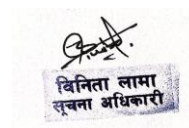 विनिता लामा
सूचना अधिकारी